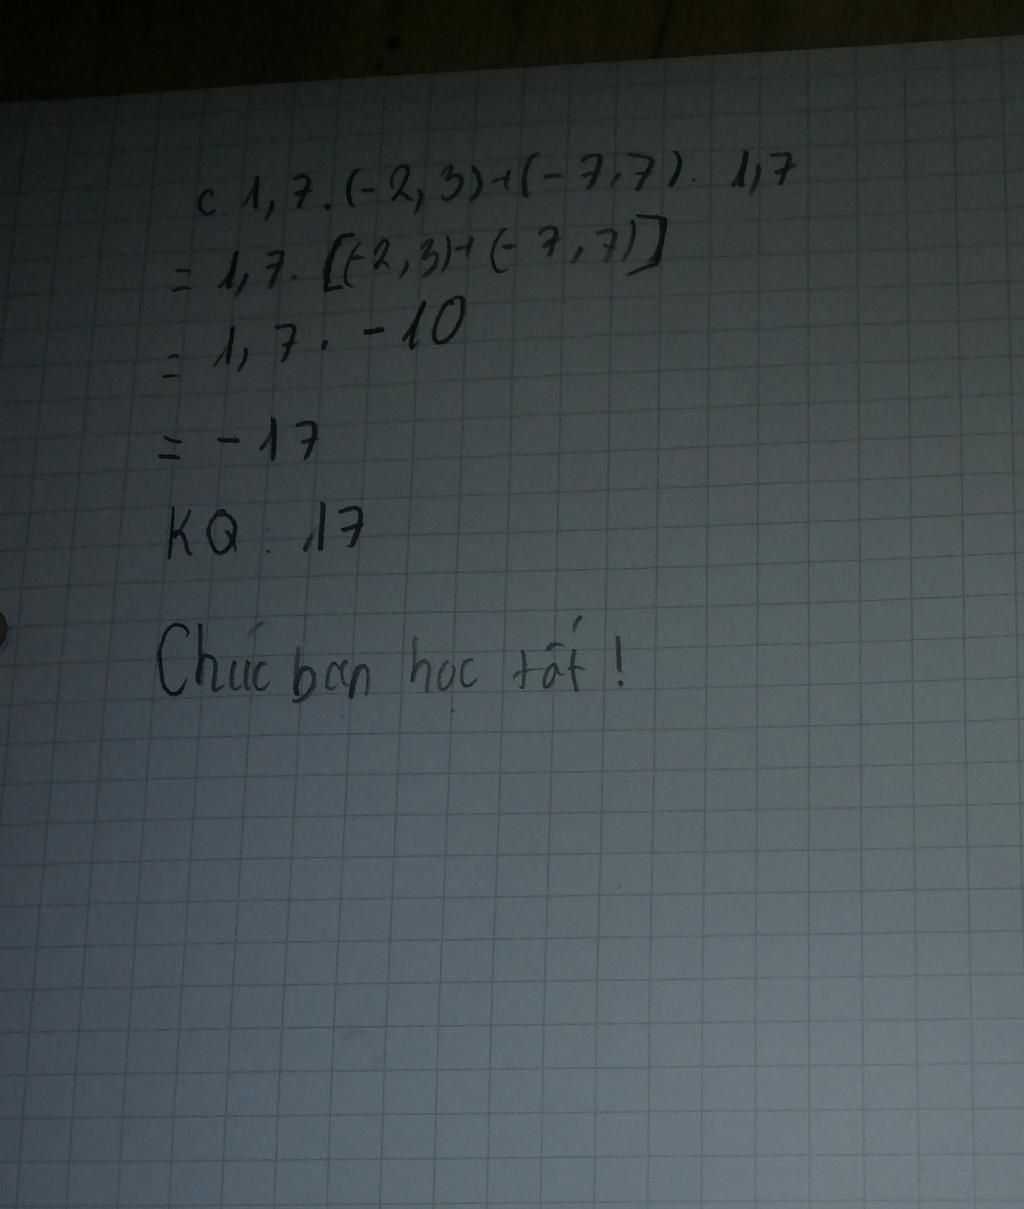 c. 1,7.(-2,3)+(-7,7). 1,7
= 1,7. [(-2,3)+(-7,7)]
= 1,7. -10
= -17
KQ: 17
Chúc bạn học tốt!